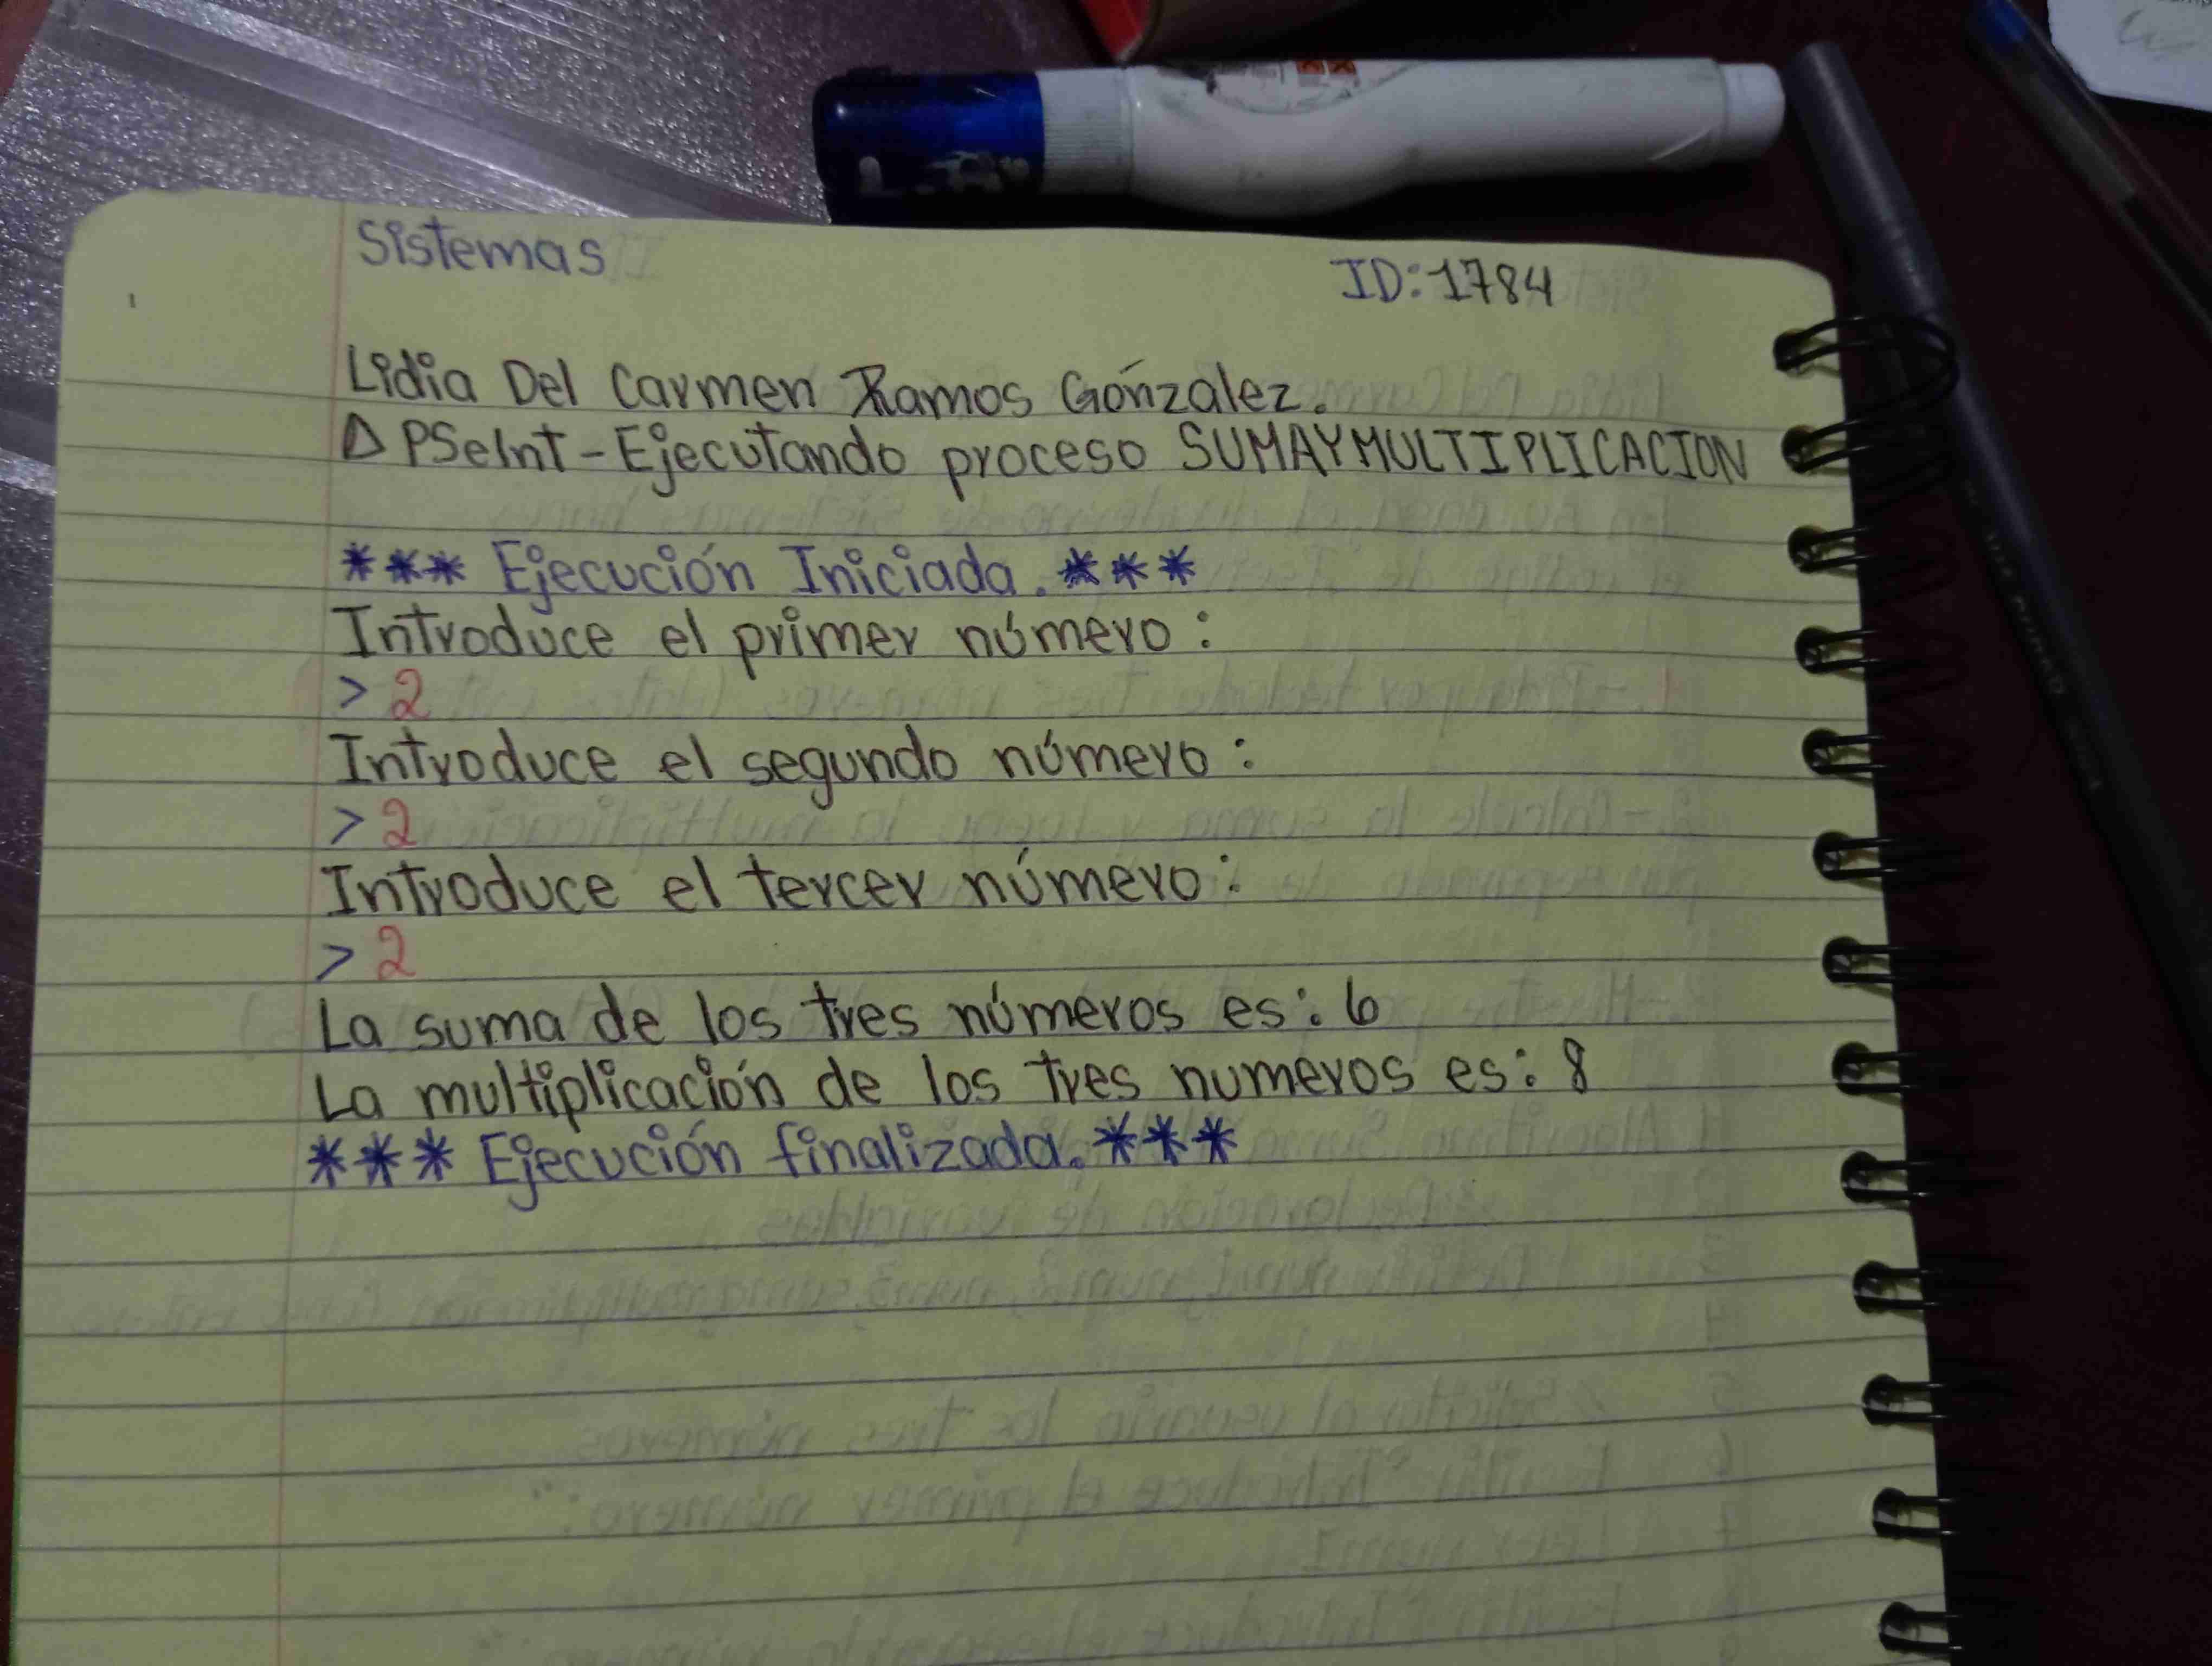 Sistemas
ID: 1784
Lidia Del Carmen Ramos Gónzalez.
PSeInt - Ejecutando proceso SUMAYMULTIPLICACION
*** Ejecución Iniciada. ***
Introduce el primer número:
> 2
Introduce el segundo número:
> 2
Introduce el tercer número:
> 2
La suma de los tres números es: 6
La multiplicación de los tres numeros es: 8
*** Ejecución finalizada. ***